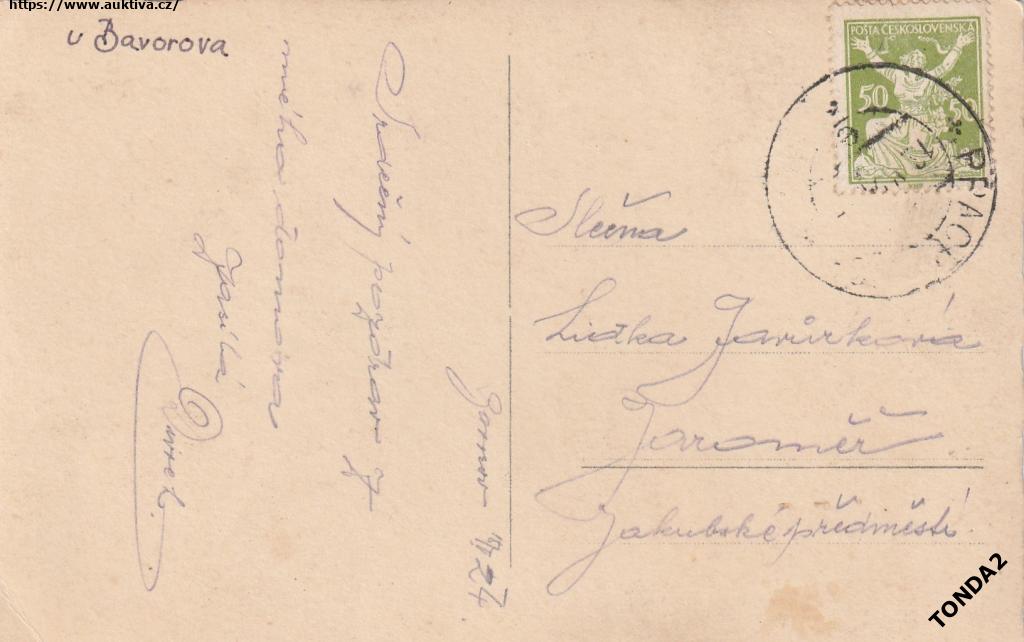 https://www.auktiva.cz/
u Bavorova
Srdečný pozdrav z
mého domova
posílá
19/7 24
POSTA ČESKOSLOVENSKÁ
50 50
Slečna
Lidka Javůrková
Jaroměř
Jakubské předměstí
TONDA2